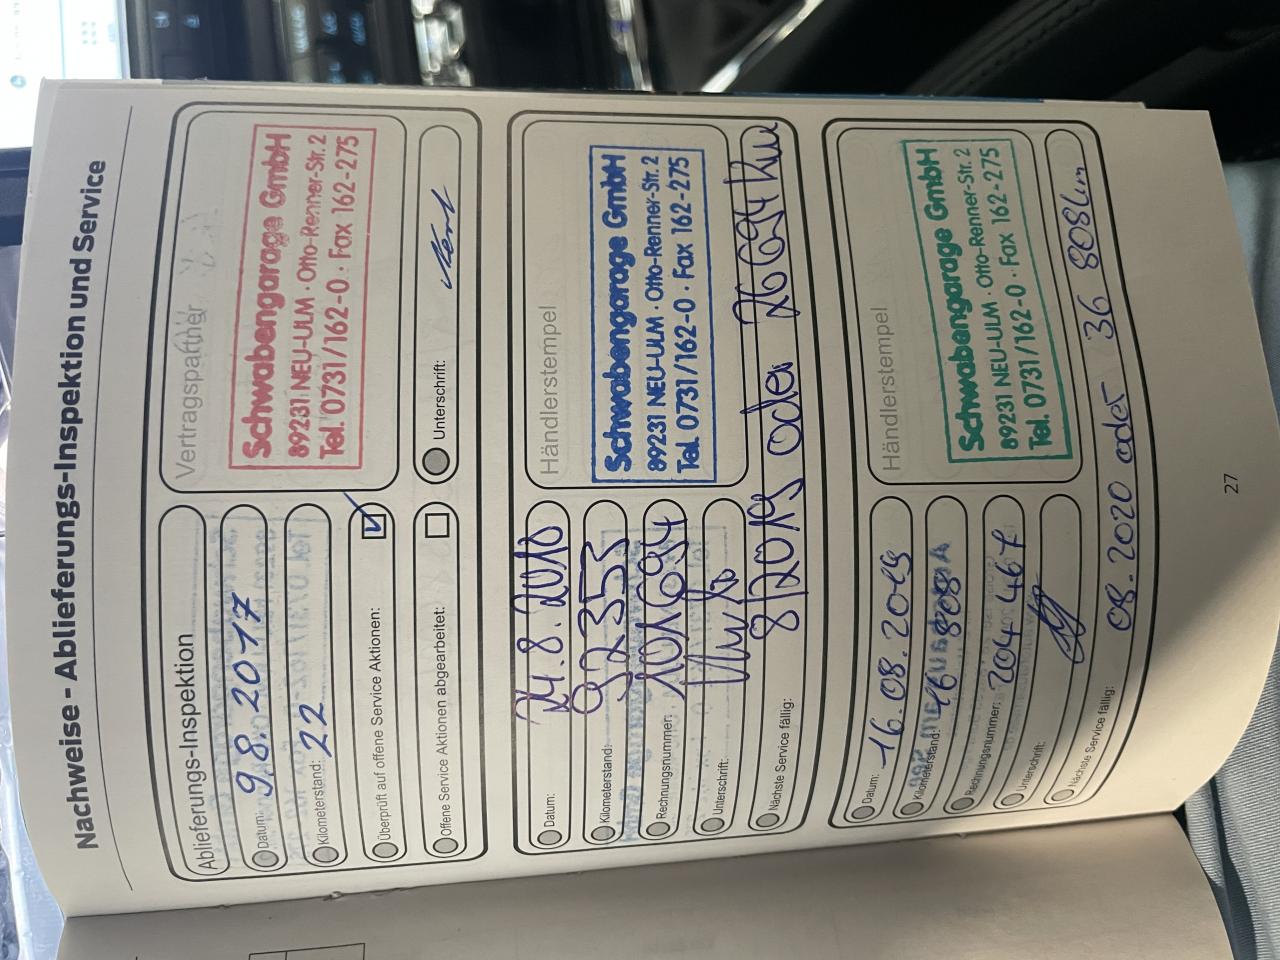 Nachweise - Ablieferungs-Inspektion und Service
Ablieferungs-Inspektion
Datum: 9.8.2017
Kilometerstand: 22
Überprüft auf offene Service Aktionen:
Offene Service Aktionen abgearbeitet:
Vertragspartner
Schwabengarage GmbH
89231 NEU-ULM · Otto-Renner-Str. 2
Tel. 0731/162-0 · Fax 162-275
Unterschrift:
Datum: 24.8.2018
Kilometerstand:
Rechnungsnummer:
Unterschrift:
Händlerstempel
Schwabengarage GmbH
89231 NEU-ULM · Otto-Renner-Str. 2
Tel. 0731/162-0 · Fax 162-275
Nächste Service fällig: 8/2019 oder 26694 km
Datum: 16.08.2019
Kilometerstand: 16 808
Rechnungsnummer: 204 467
Unterschrift:
Händlerstempel
Schwabengarage GmbH
89231 NEU-ULM · Otto-Renner-Str. 2
Tel. 0731/162-0 · Fax 162-275
Nächste Service fällig: 08.2020 oder 36 808 km
27